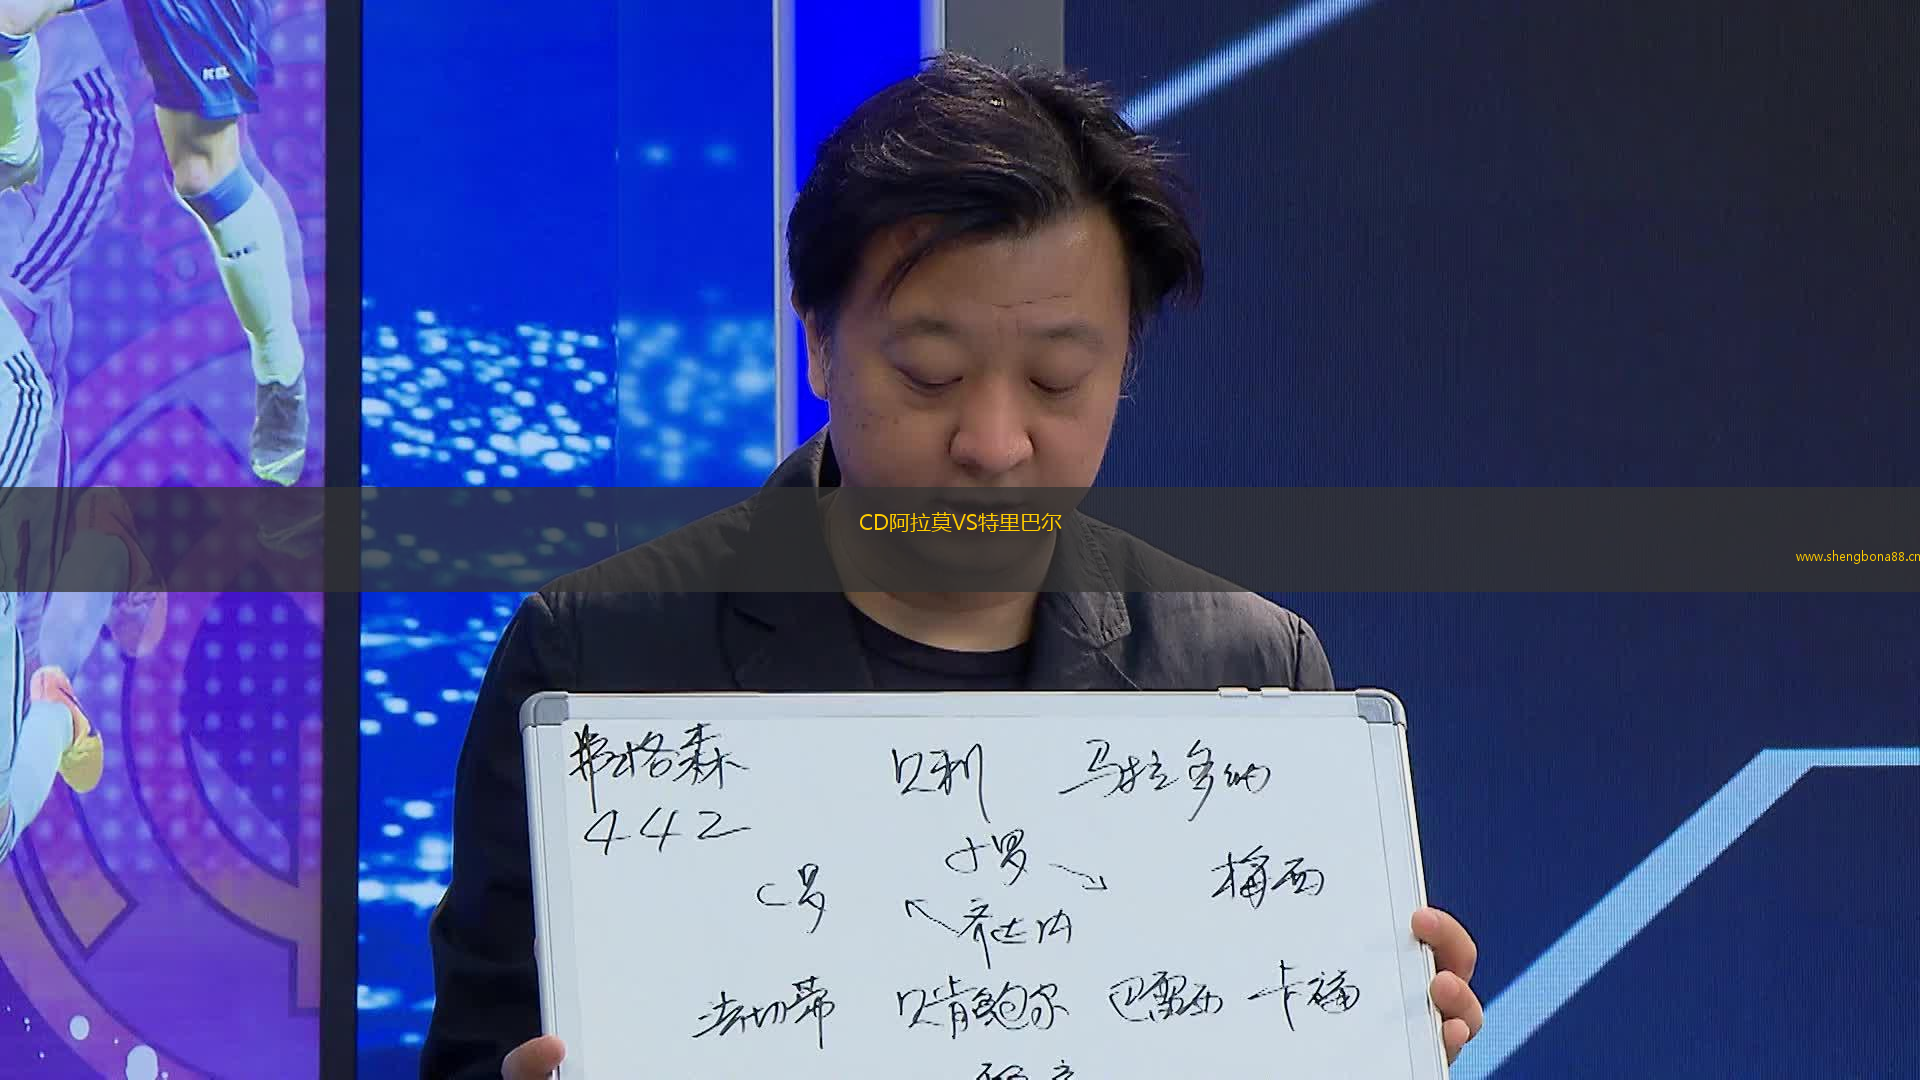 KEL
CD阿拉莫VS特里巴尔
www.shengbona88.cn
弗格森 贝利 马拉多纳
442
小罗
C罗 梅西
齐达内
法切蒂 贝肯鲍尔 巴雷西 卡福